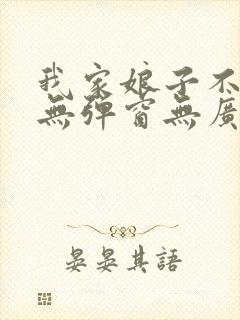 我家娘子不
無彈窗無廣
晏晏其語